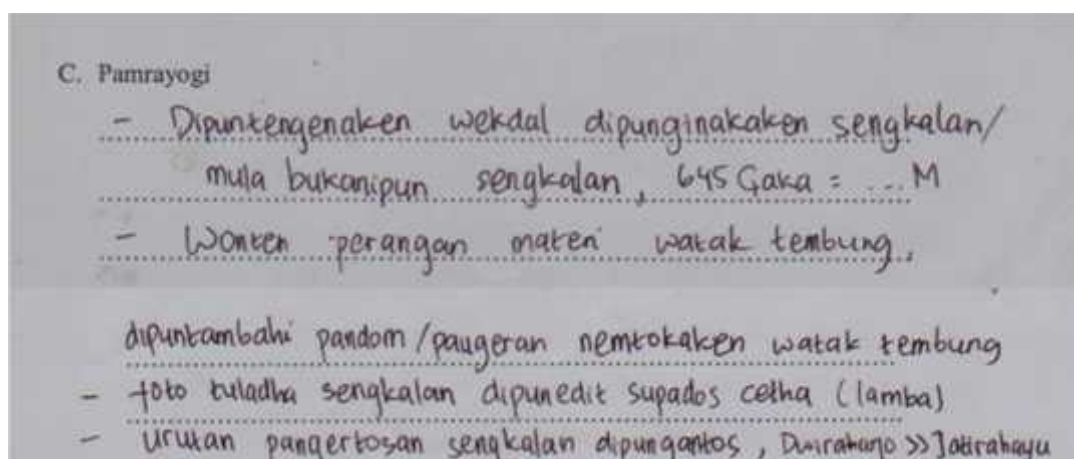 C. Pamrayogi
- Dipuntengenaken wekdal dipunginakaken sengkalan/
mula bukanipun sengkalan, 645 Çaka = ... M
- Wonten perangan materi watak tembung,
dipuntambahi pandom/paugeran nemtokaken watak tembung
- foto tuladha sengkalan dipunedit supados cetha (lamba)
- urutan pangertosan sengkalan dipungantos, >> Jatirahayu